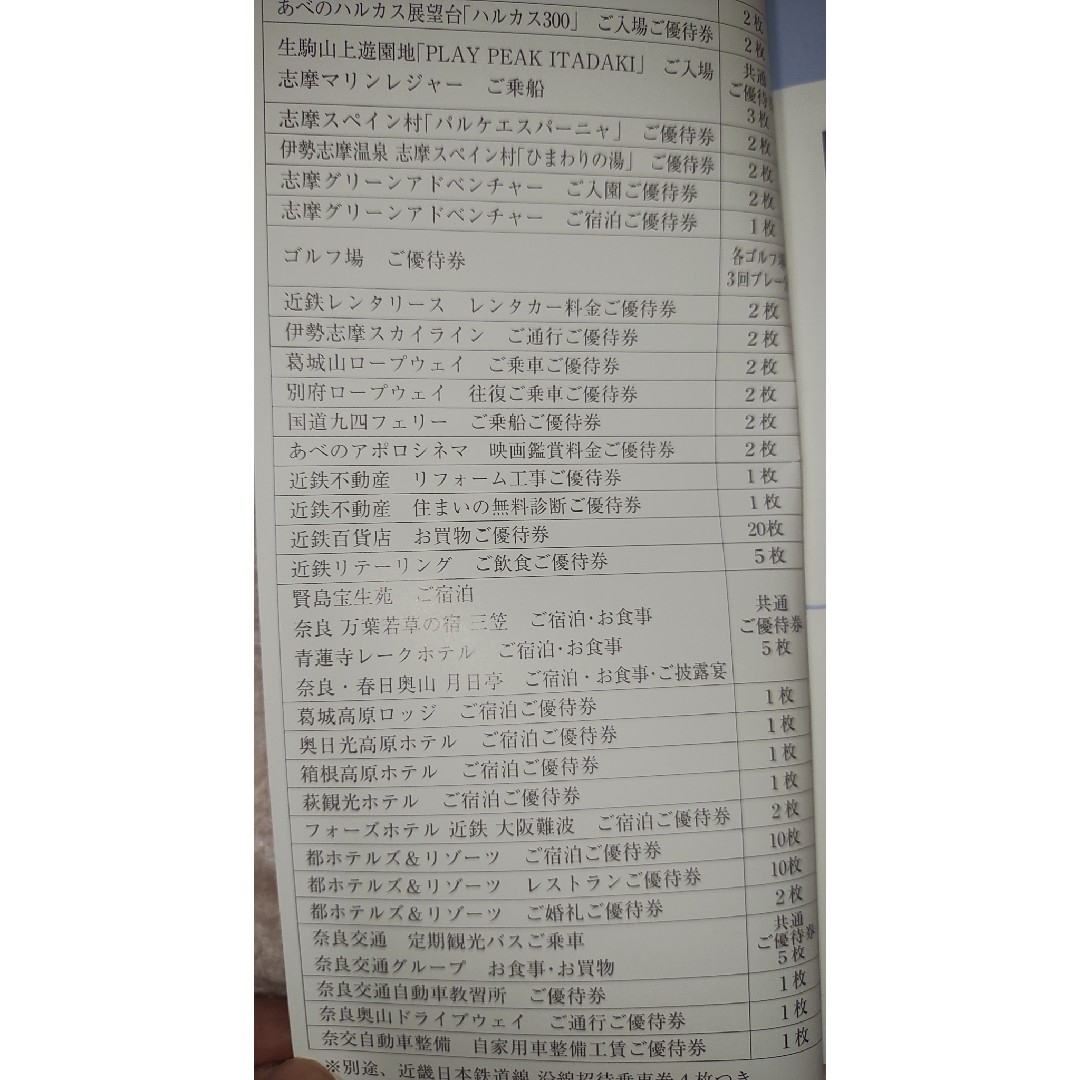 あべのハルカス展望台「ハルカス300」 ご入場ご優待券 2枚
2枚
生駒山上遊園地「PLAY PEAK ITADAKI」 ご入場
志摩マリンレジャー ご乗船
共通
ご優待
3枚
志摩スペイン村「パルケエスパーニャ」 ご優待券 2枚
伊勢志摩温泉 志摩スペイン村「ひまわりの湯」 ご優待券 2枚
志摩グリーンアドベンチャー ご入園ご優待券 2枚
志摩グリーンアドベンチャー ご宿泊ご優待券 1枚
ゴルフ場 ご優待券
各ゴルフ場
3回プレー
近鉄レンタリース レンタカー料金ご優待券 2枚
伊勢志摩スカイライン ご通行ご優待券 2枚
葛城山ロープウェイ ご乗車ご優待券 2枚
別府ロープウェイ 往復ご乗車ご優待券 2枚
国道九四フェリー ご乗船ご優待券 2枚
あべのアポロシネマ 映画鑑賞料金ご優待券 2枚
近鉄不動産 リフォーム工事ご優待券 1枚
近鉄不動産 住まいの無料診断ご優待券 1枚
近鉄百貨店 お買物ご優待券 20枚
近鉄リテーリング ご飲食ご優待券 5枚
賢島宝生苑 ご宿泊
奈良 万葉若草の宿 三笠 ご宿泊・お食事
青蓮寺レークホテル ご宿泊・お食事
奈良・春日奥山 月日亭 ご宿泊・お食事・ご披露宴
共通
ご優待券
5枚
葛城高原ロッジ ご宿泊ご優待券 1枚
奥日光高原ホテル ご宿泊ご優待券 1枚
箱根高原ホテル ご宿泊ご優待券 1枚
萩観光ホテル ご宿泊ご優待券 1枚
フォーズホテル 近鉄 大阪難波 ご宿泊ご優待券 2枚
都ホテルズ&リゾーツ ご宿泊ご優待券 10枚
都ホテルズ&リゾーツ レストランご優待券 10枚
都ホテルズ&リゾーツ ご婚礼ご優待券 2枚
奈良交通 定期観光バスご乗車
奈良交通グループ お食事・お買物
共通
ご優待券
5枚
奈良交通自動車教習所 ご優待券 1枚
奈良奥山ドライブウェイ ご通行ご優待券 1枚
奈交自動車整備 自家用車整備工賃ご優待券 1枚
※別途、近畿日本鉄道線 沿線招待乗車券4枚つき